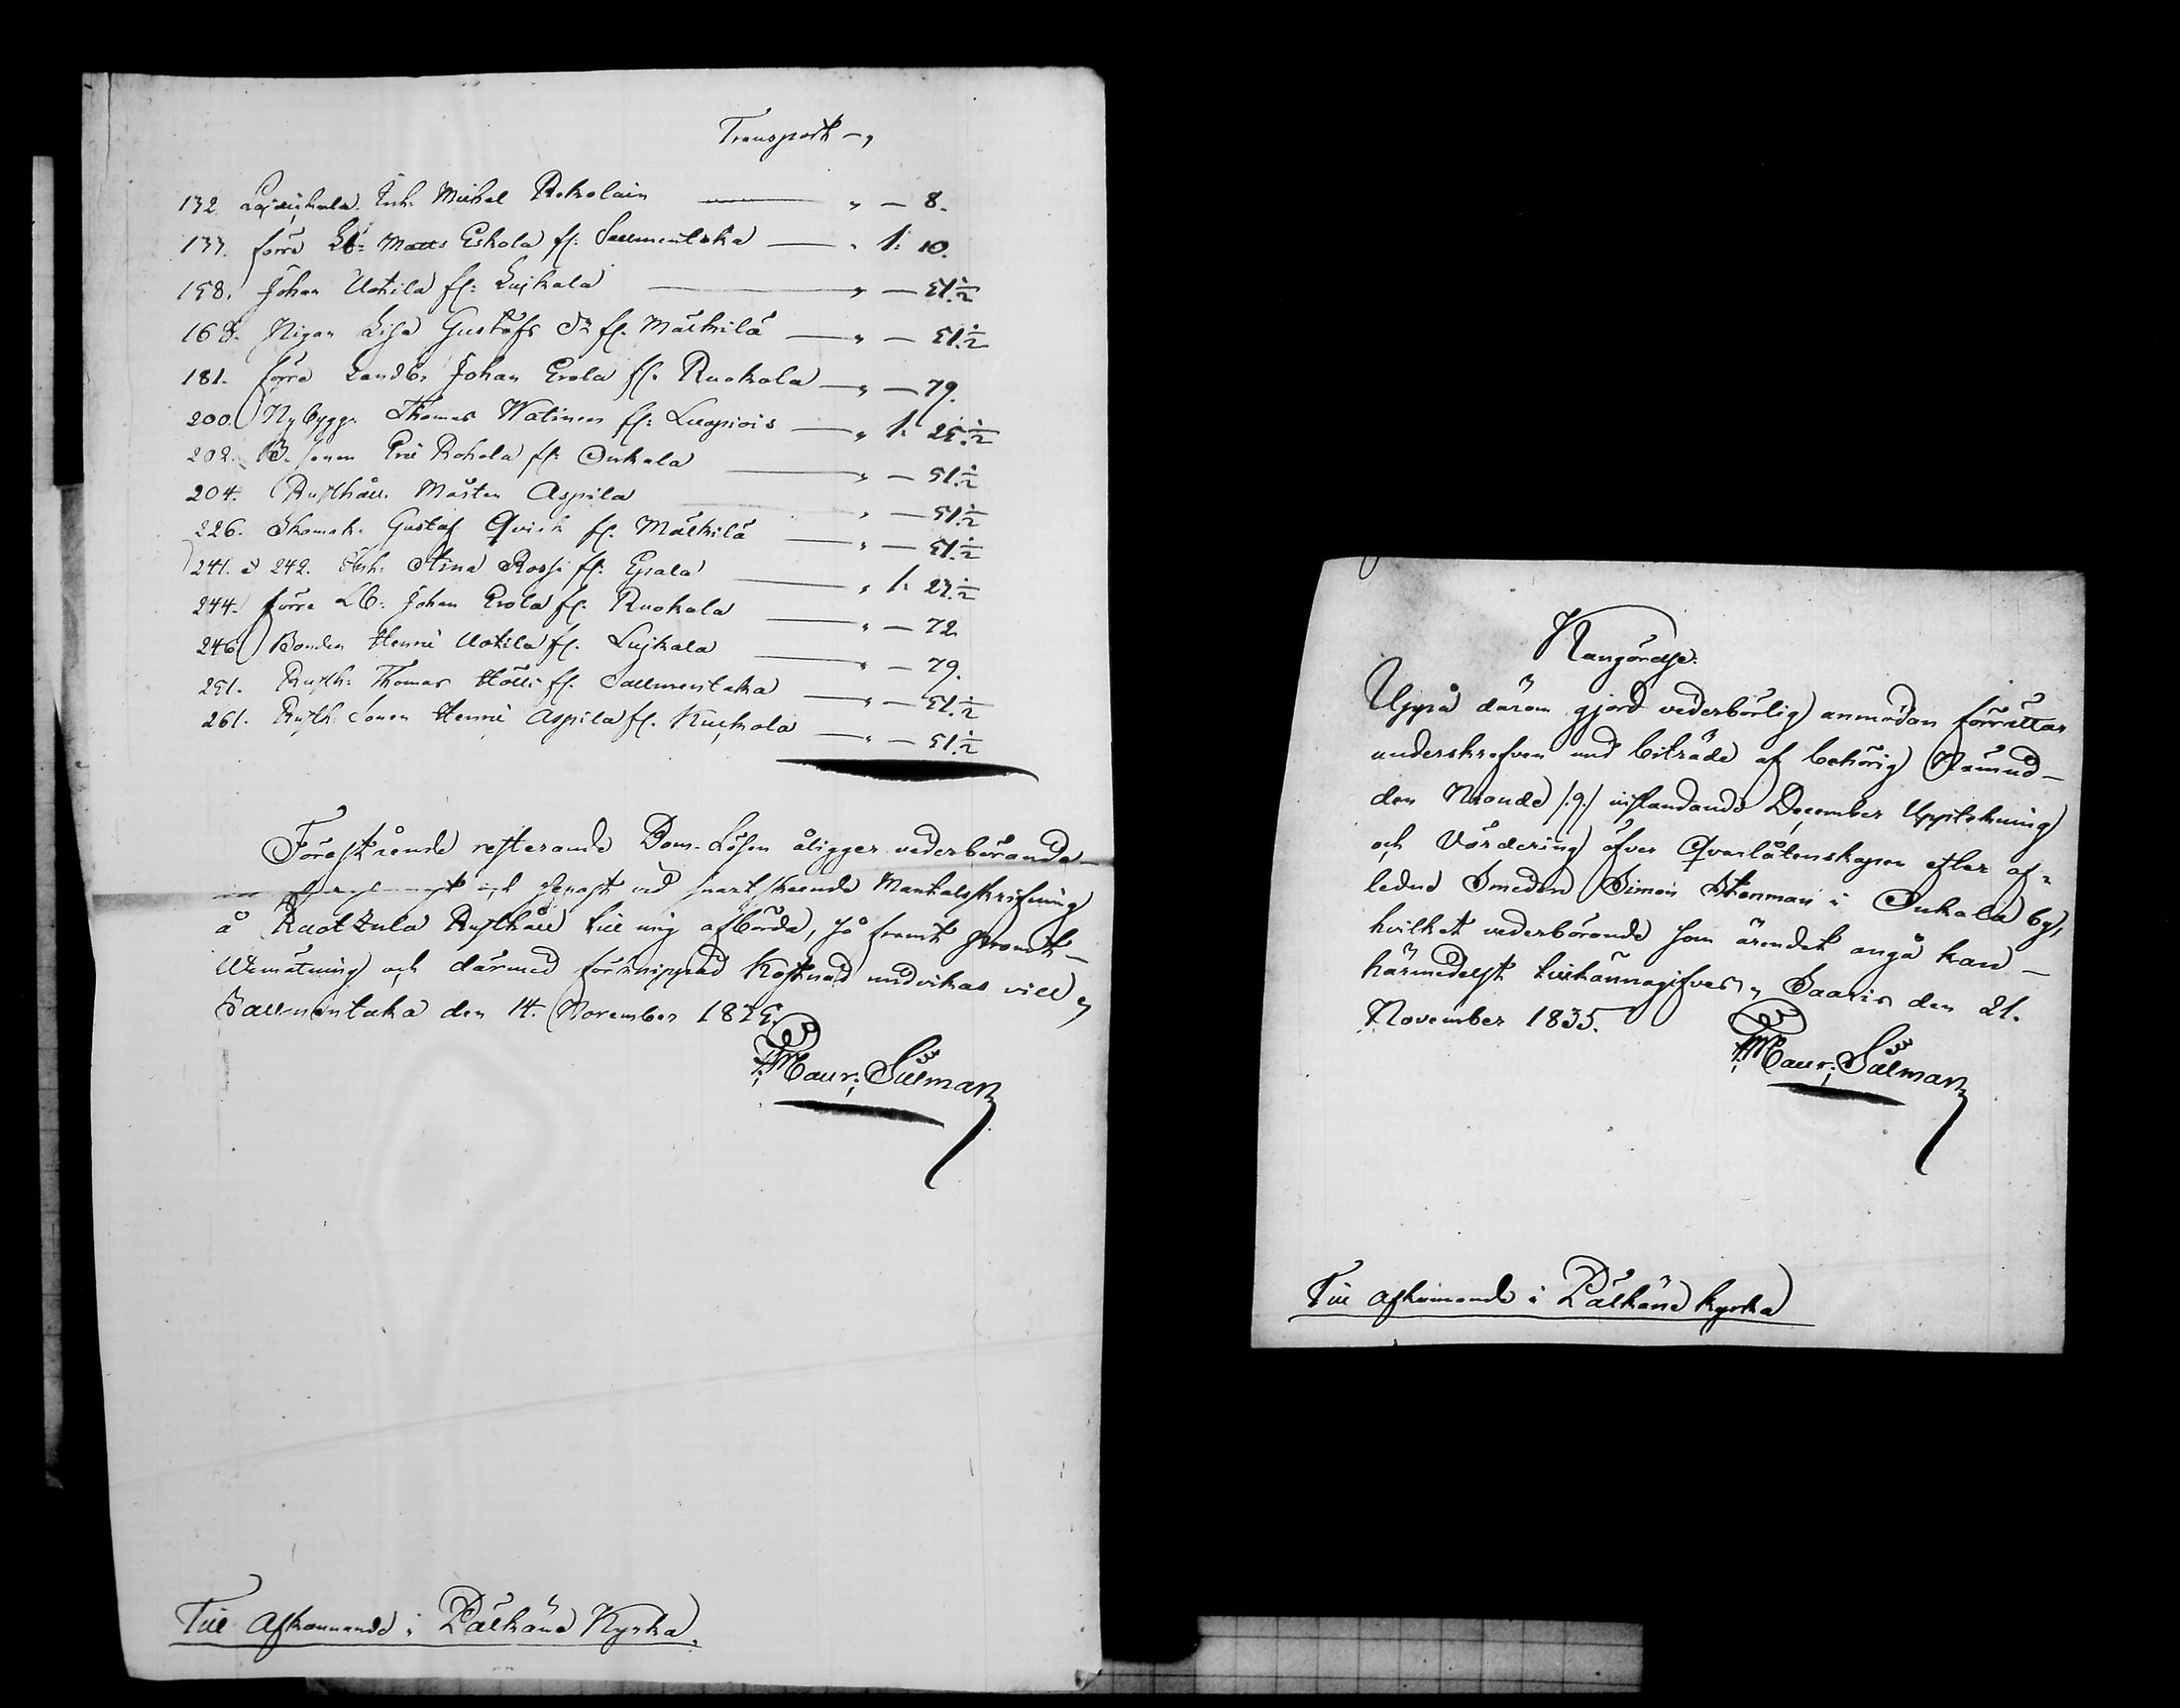 Transport —„
132. Lajdikala. Enk. Michel Rokolain — „ — 8.
133. förre Lb: Matts Eskola fl: Sallmentaka — „ 1: 10.
158. Johan Uotila fl: Lujkala — „ — 51.½
168. Pigan Lisa Gustafs Dr fl. Mälkilä — „ — 51.½
181. förre Landb. Johan Erola fl. Ruokola — „ — 79.
200. Nybygg. Thomas Watinen fl: Luopiois — „ 1: 25.½
202. B. sonen Eric Rokola fl: Onkala — „ — 51.½
204. Rusthåll. Mårten Aspila — „ — 51.½
226. Skomak. Gustaf Qvick fl. Mälkilä — „ — 51.½
241. & 242. Enk. Stina Rossi fl: Epaala — „ 1: 23.½
244. förre Lb: Johan Erola fl. Ruokola — „ — 72.
246. Bonden Henric Uotila fl. Lujkala — „ — 79.
251. Rusth: Thomas Hölli fl. Sallmentaka — „ — 51.½
261. Rusth. Sonen Henric Aspila fl. Kuckola — „ — 51.½
Förestående resterande Dom-Lösen åligger vederbörande
och senast vid snart skeende Mantalskrifning
å Kaotzula Rusthåll till mig afbörda, så framt promt
Utmätning och därmed förknippad kostnad undvikas vill„
Sallmentaka den 14. November 1835.
Maur: Silman
Till Afkunnande i Pälkäne Kyrka.
Kungörelse.
Uppå därom gjord vederbörlig anmodan förrättar
underskrefven med biträde af behörig Nämnd
den Nionde /:9:/ instundande December Uppteckning
och Värdering öfver Qvarlåtenskapen efter af„
ledne Smeden Simon Stenman i Onkala by,
hvilket vederbörande som ärendet angå kan
härmedelst tillkännagifves„ Saaris den 21.
November 1835.
Maur: Silman
Till afkunnande i Pälkäne kyrka